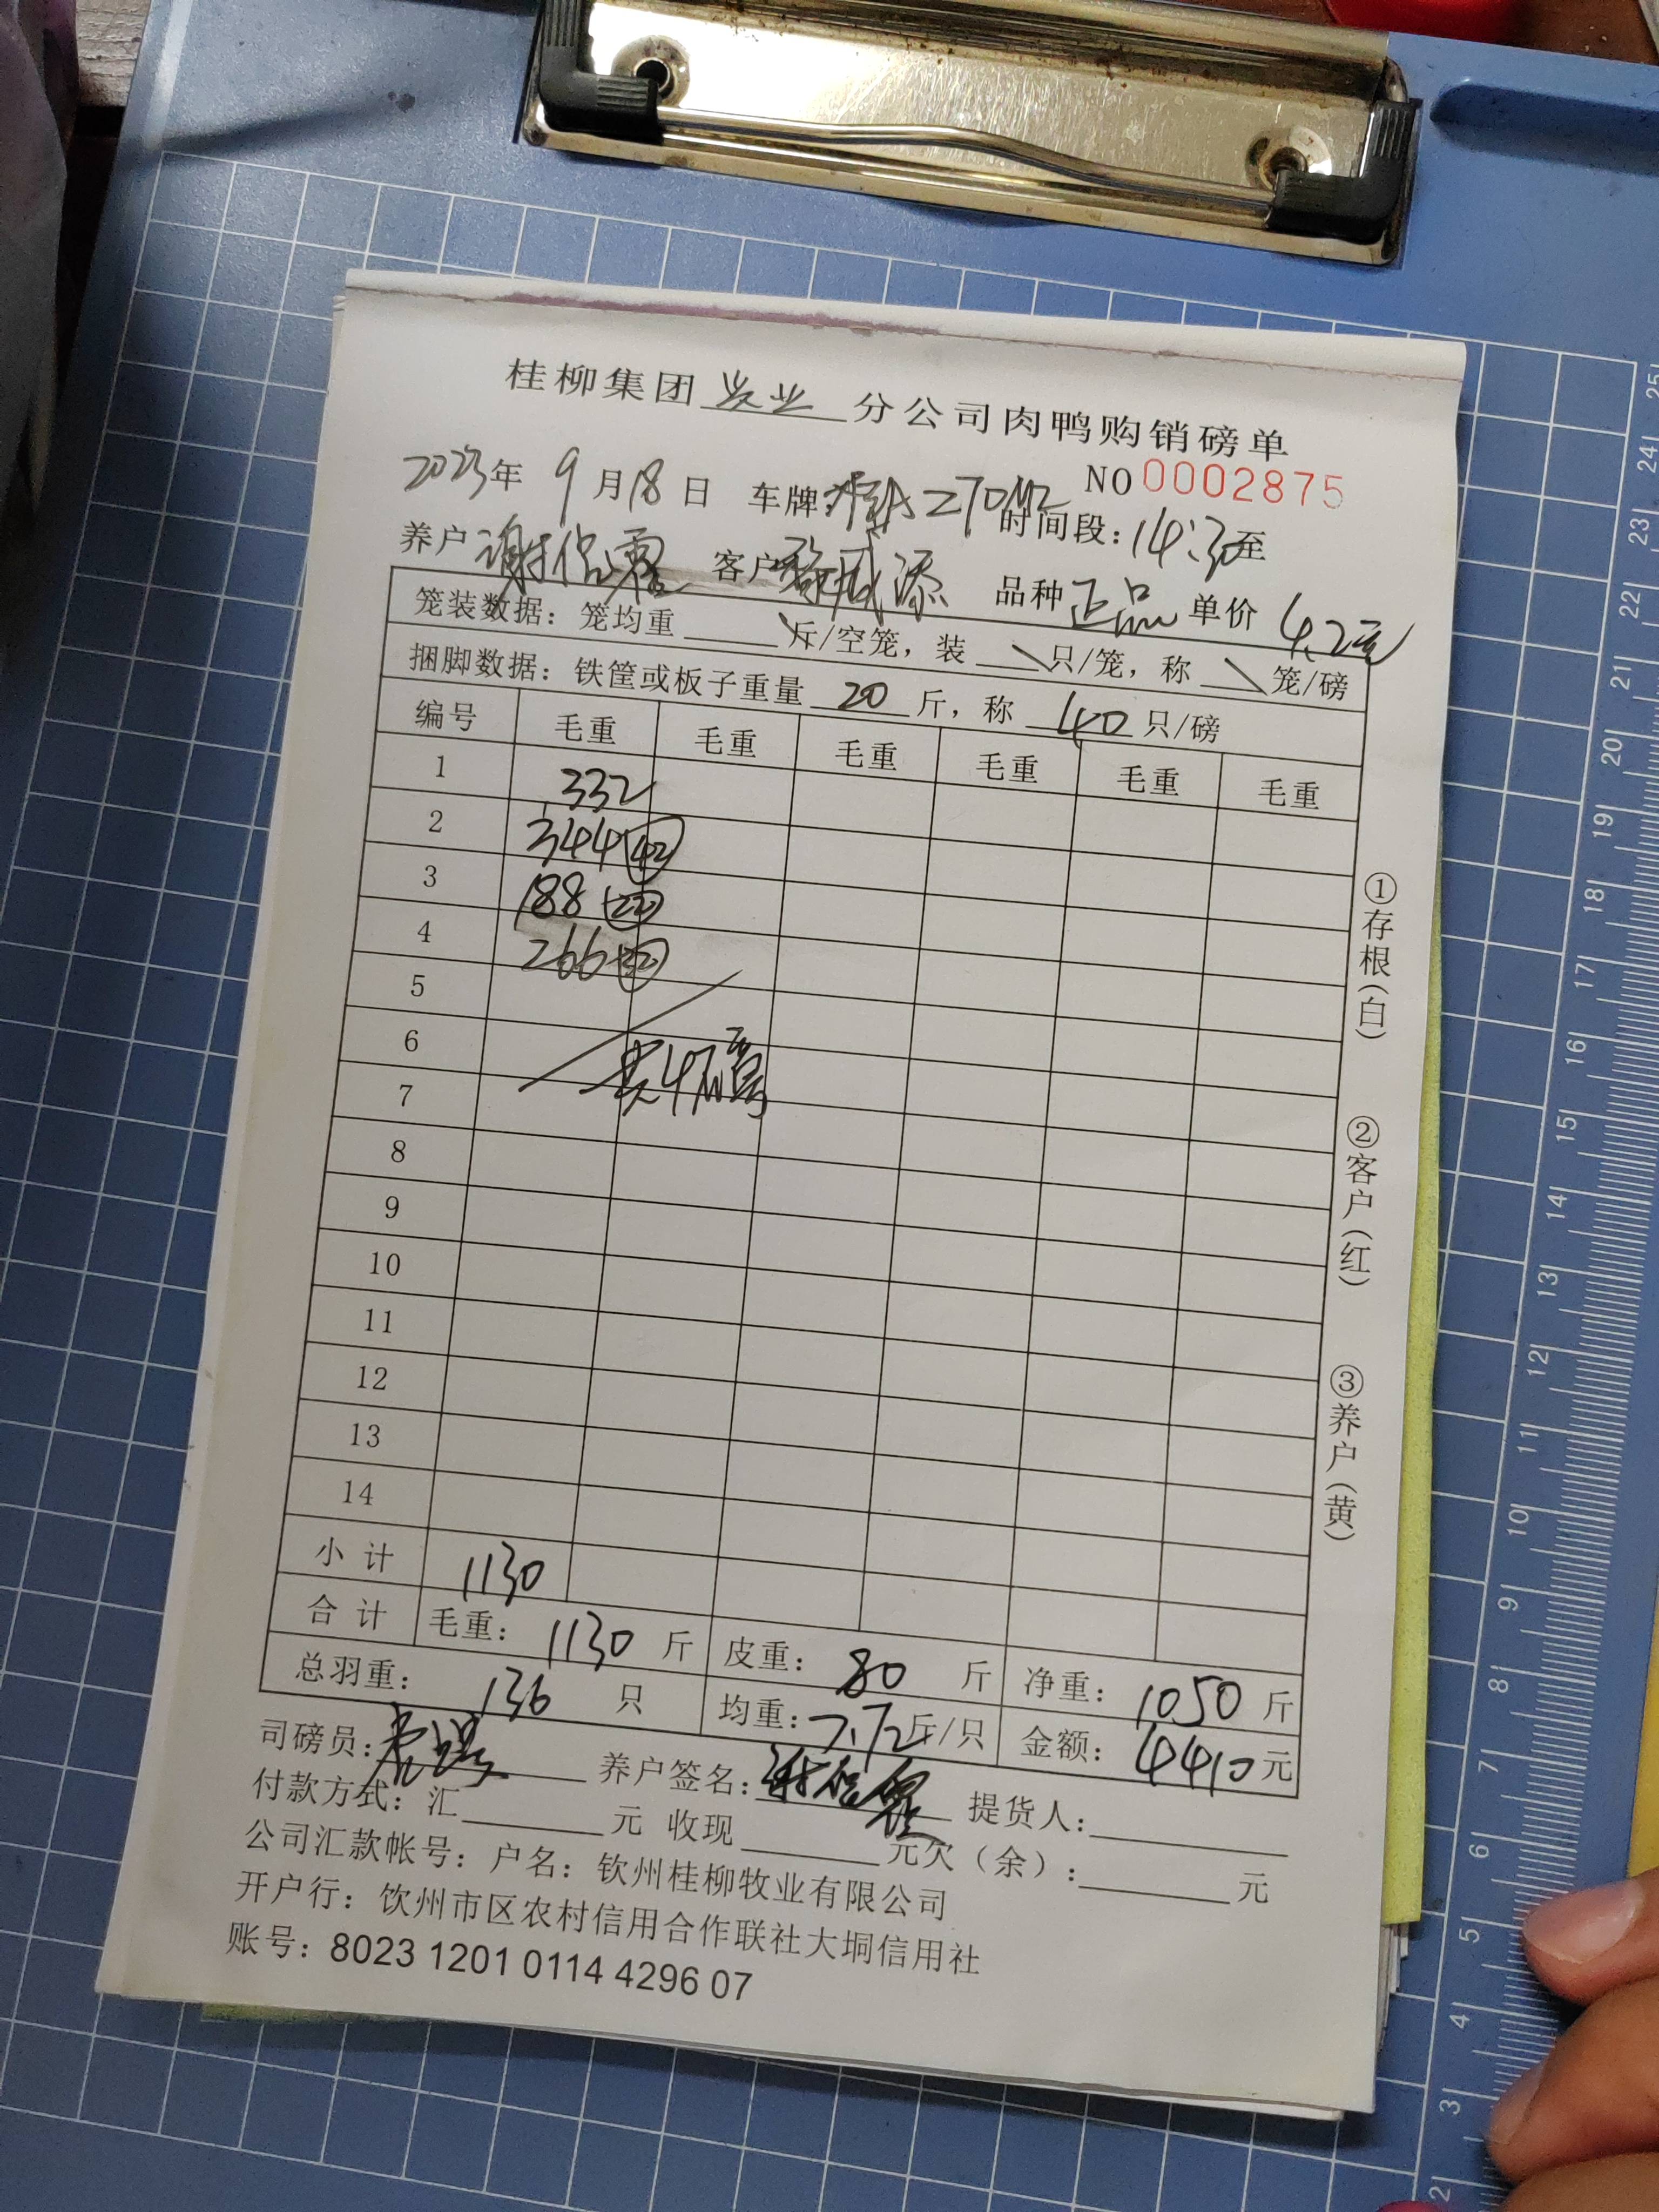 桂柳集团 牧业 分公司肉鸭购销磅单
NO 0002875
2023年 9月18日 车牌: 时间段: 14:30至
养户 客户 品种 正品 单价 4.2元
笼装数据: 笼均重 斤/空笼, 装 只/笼, 称 笼/磅
捆脚数据: 铁筐或板子重量 20 斤, 称 40 只/磅
编号 毛重 毛重 毛重 毛重 毛重 毛重
1 332
2 344 42
3 188 22
4 266 32
5
6
共4磅
7
8
9
10
11
12
13
14
小计 1130
合计 毛重: 1130 斤 皮重: 80 斤 净重: 1050 斤
总羽重: 136 只 均重: 7.72斤/只 金额: 4410元
司磅员: 养户签名: 提货人:
付款方式: 汇 元 收现 元欠(余): 元
公司汇款帐号: 户名: 钦州桂柳牧业有限公司
开户行: 饮州市区农村信用合作联社大垌信用社
账号: 8023 1201 0114 4296 07
①存根(白)
②客户(红)
③养户(黄)
25
24
23
22
21
20
19
18
17
16
15
14
13
12
11
10
9
8
7
6
5
4
3
2